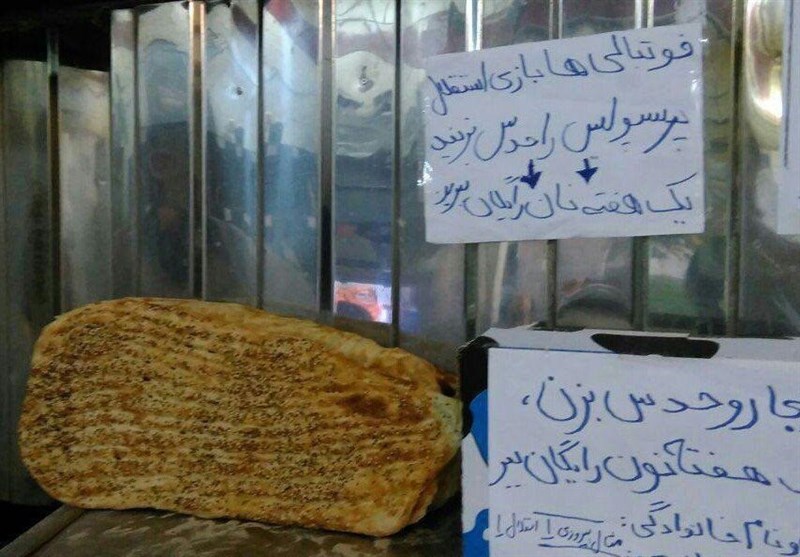 فوتبالی ها بازی استقلال
پرسپولیس را حدس بزنید
یک هفته نان رایگان ببرید
جا رو حدس بزن،
هفته نون رایگان ببر
نام خانوادگی:
مثال پیروزی 1 استقلال 1